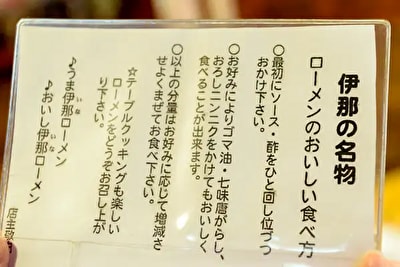 伊那の名物
ローメンのおいしい食べ方
○最初にソース・酢をひと回し位づつ
おかけ下さい。
○お好みによりゴマ油・七味唐がらし、
おろしニンニクをかけてもおいしく
食べることが出来ます。
○以上の分量はお好みに応じて増減さ
せよくまぜてお食べ下さい。
☆テーブルクッキングも楽しい
ローメンをどうぞお召し上が
り下さい。
♪うま伊那ローメン
♪おいし伊那ローメン
店主敬白